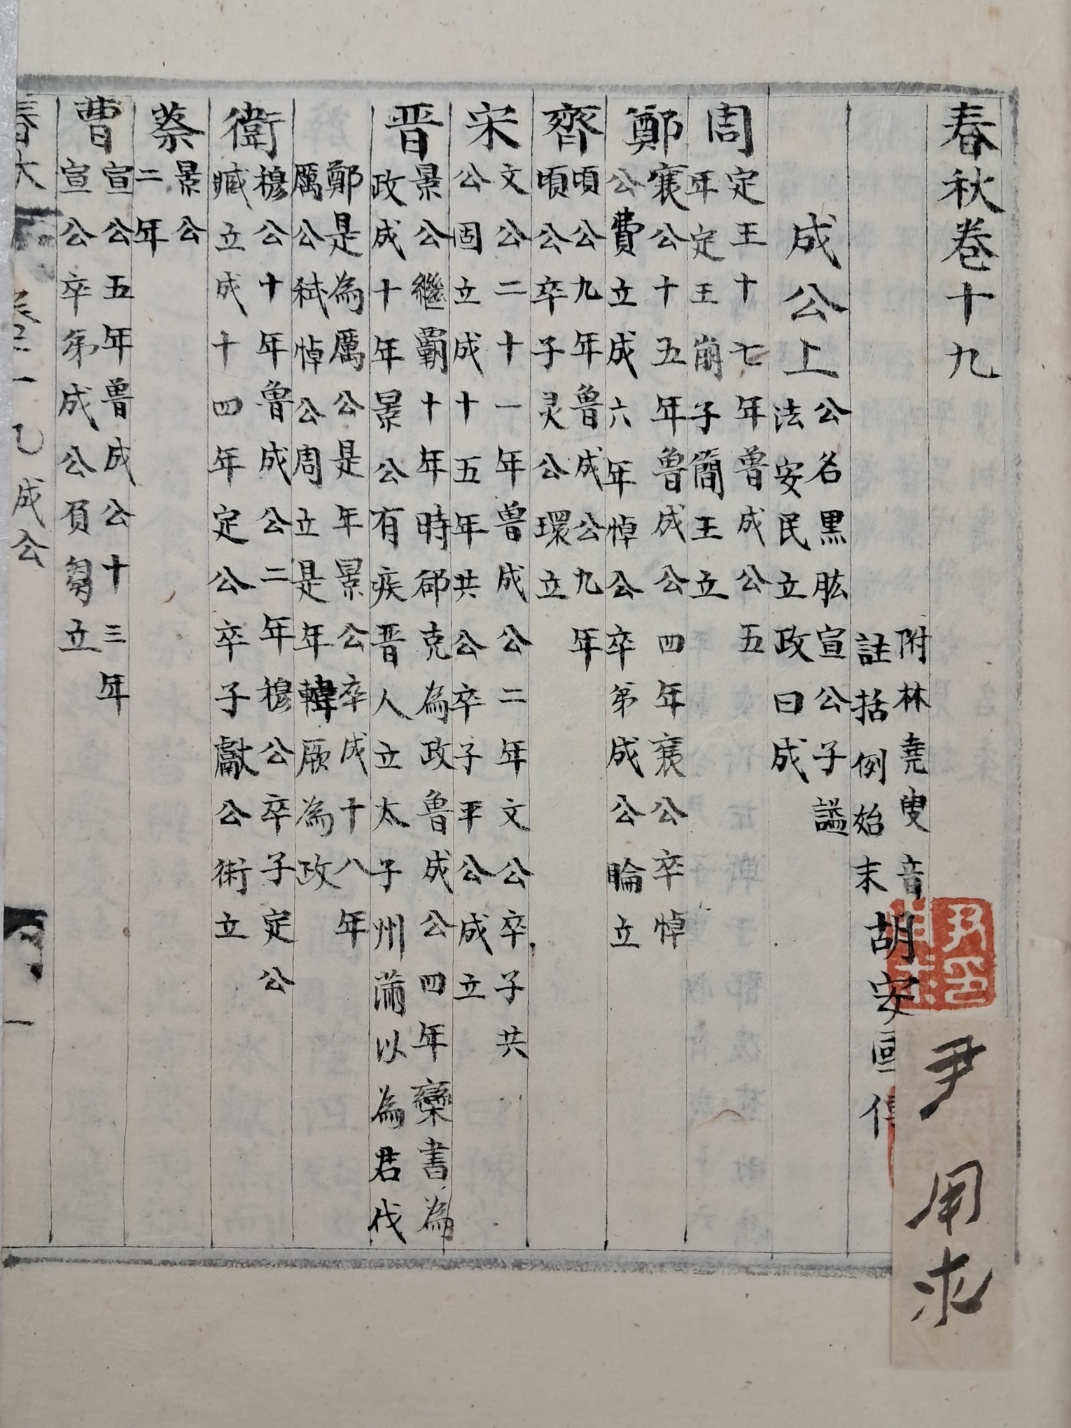 春秋卷十九
附林堯叟音
註括例始末
胡安國傳
成公上
公名黑肱宣公子謚
法安民立政曰成
周
定王十七年魯成公五
年定王崩子簡王立
鄭
襄公十五年魯成公四年襄公卒悼
公費立成六年悼公卒弟成公睔立
齊
頃公九年魯成公九年
頃公卒子灵公環立
宋
文公二十一年魯成公二年文公卒子共
公固立成十五年共公卒子平公成立
晋
景公繼霸十年時郤克為政魯成公四年欒書為
政成十年景公有疾晋人立太子州蒲以為君伐
鄭是為厲公是年景公卒成十八年
厲公弒悼公周立是年韓厥為政
衛
穆公十年魯成公二年穆公卒子定公
臧立成十四年定公卒子獻公衎立
蔡
景公
二年
曹
宣公五年魯成公十三年
宣公卒弟成公負芻立
成公
一
尹用求